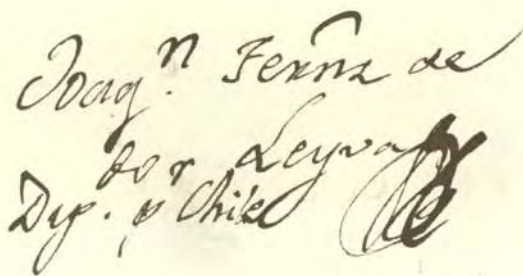 Joaq.n Fernz de
Leyva
Dip.dor p Chile